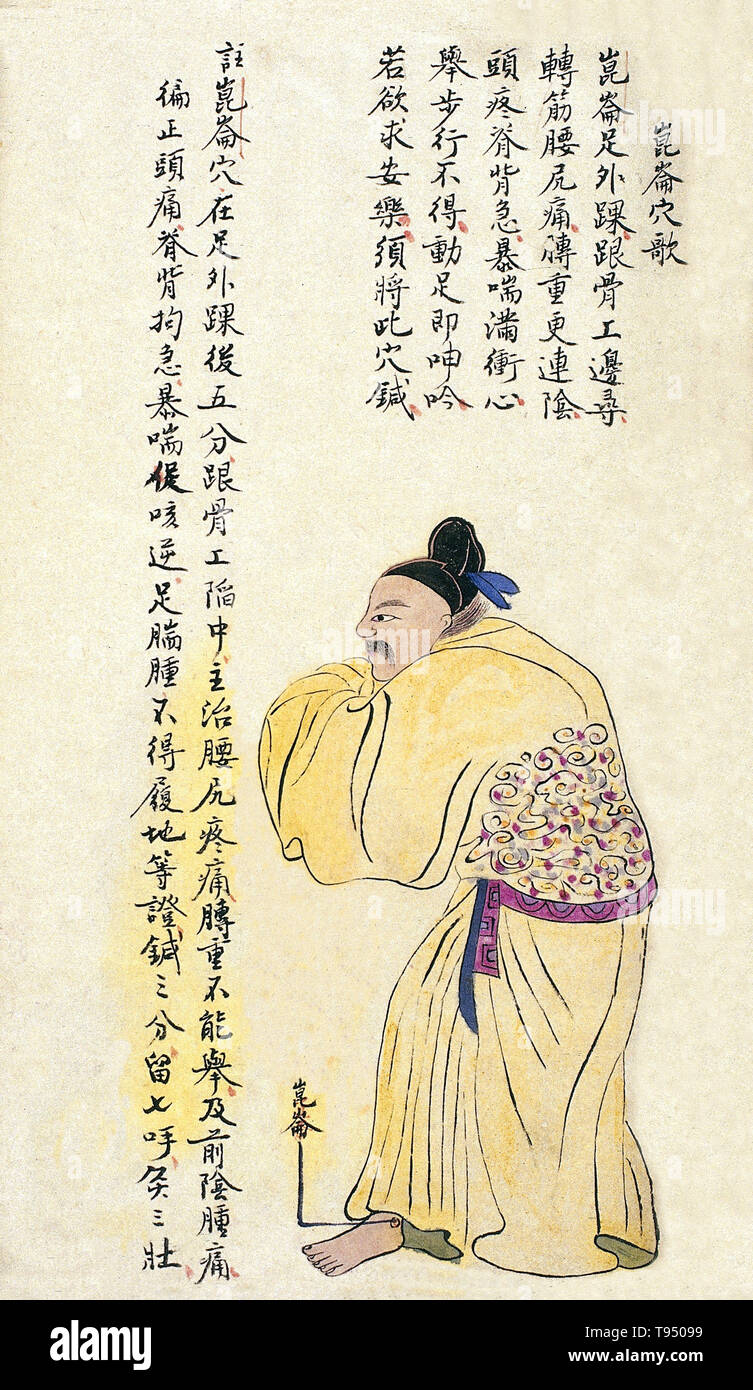 崑崙穴歌
崑崙足外踝跟骨工邊尋
轉筋腰尻痛膞重更連陰
頭疼脊背急暴喘滿衝心
舉步行不得動足即呻吟
若欲求安樂須將此穴鍼
註崑崙穴在足外踝後五分跟骨工陷中主治腰尻疼痛膞重不能舉及前陰腫痛
徧正頭痛脊背拘急暴喘促咳逆足腨腫不得履地等證鍼三分留七呼灸三壯
崑崙
alamy
alamy
alamy
alamy
Image ID: T95099
www.alamy.com